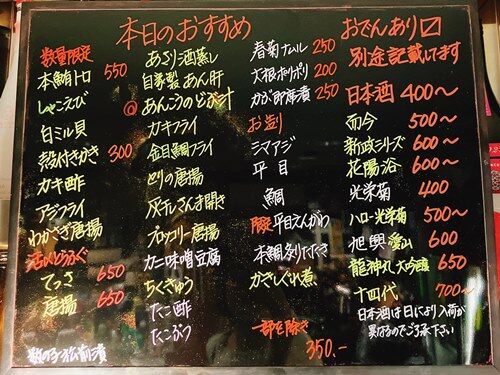 本日のおすすめ
おでんあり〼
別途記載してます
数量限定
本鮪トロ 550
しゃこえび
白ミル貝
殻付きかき 300
カキ酢
アジフライ
わかさぎ唐揚
活〆とらふぐ
てっさ 650
唐揚 650
数の子松前漬
あさり酒蒸し
自家製あん肝
@あんこうのどぶ汁
カキフライ
金目鯛フライ
とりの唐揚
灰干しさんま開き
ブロッコリー唐揚
カニ味噌豆腐
ちくきゅう
たこ酢
たこぶつ
春菊ナムル 250
大根ポリポリ 200
かぶ即席漬 250
お造り
シマアジ
平目
鯛
限定平目えんがわ
本鯛炙りたたき
かきしぐれ煮
一部を除き
350.-
日本酒 400〜
而今 500〜
新政シリーズ 600〜
花陽浴 600〜
光栄菊 400
ハロー光栄菊 500〜
旭興 瀧山 600
龍神丸 大吟醸 650
十四代 700〜
日本酒は日により入荷が
異なるのでご了承下さい